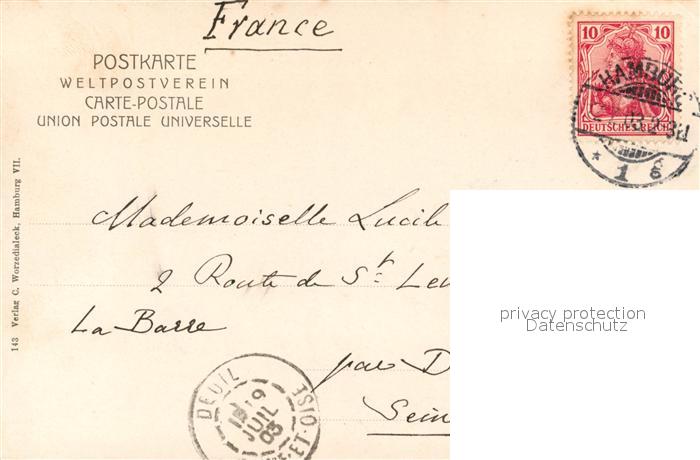 France
POSTKARTE
WELTPOSTVEREIN
CARTE-POSTALE
UNION POSTALE UNIVERSELLE
10 10
DEUTSCHES REICH
HAMBURG
03
* 1 g
143 Verlag C. Worzedialeck, Hamburg VII.
Mademoiselle Lucil
2 Route de St Leu
La Barre
par D
Sein
privacy protection
Datenschutz
DEUIL
19
JUIL
03
ET-OISE